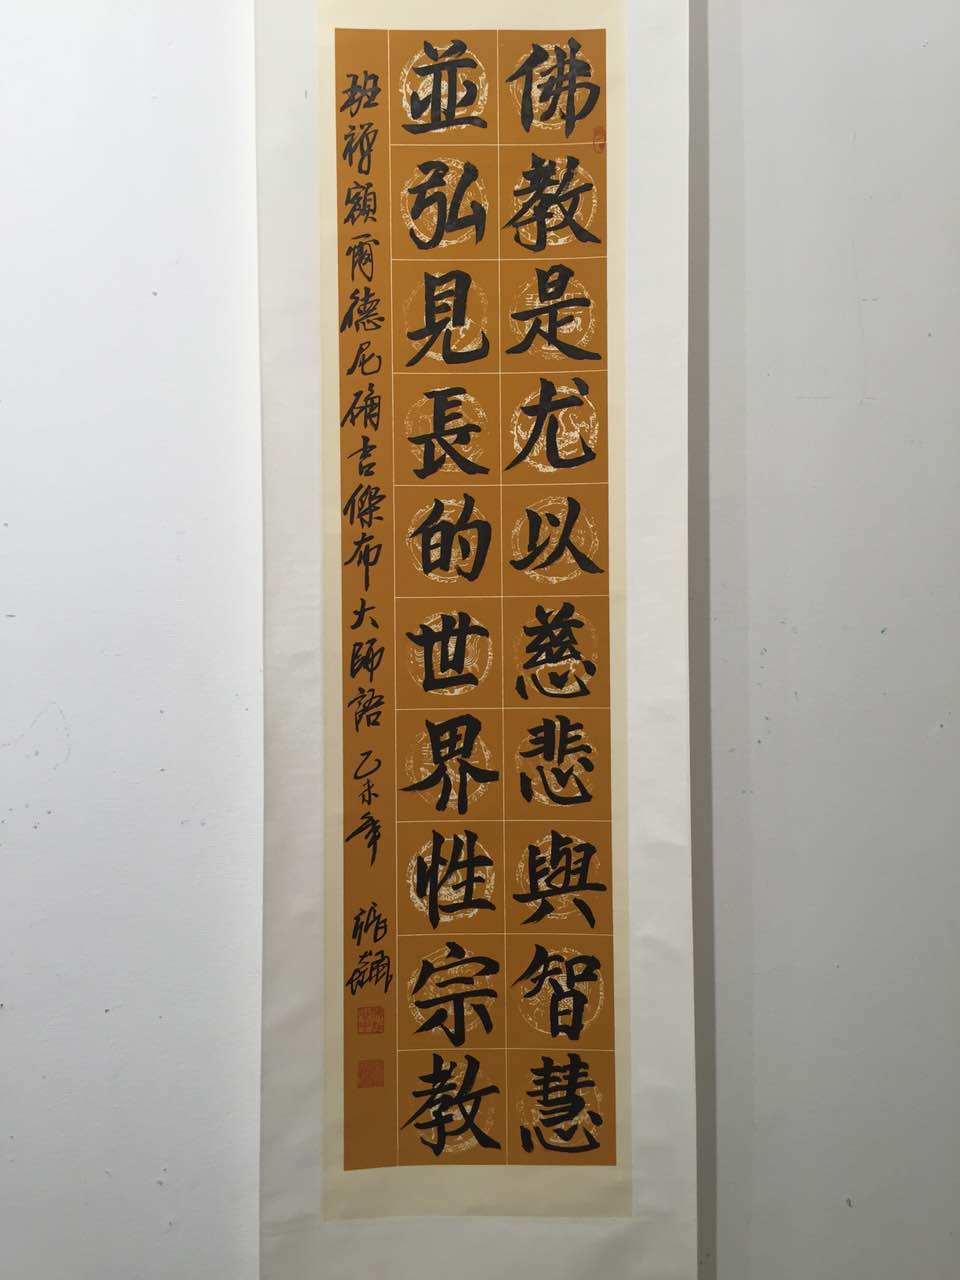 佛教是尤以慈悲與智慧
並弘見長的世界性宗教
班禪額爾德尼確吉傑布大師語 乙未年